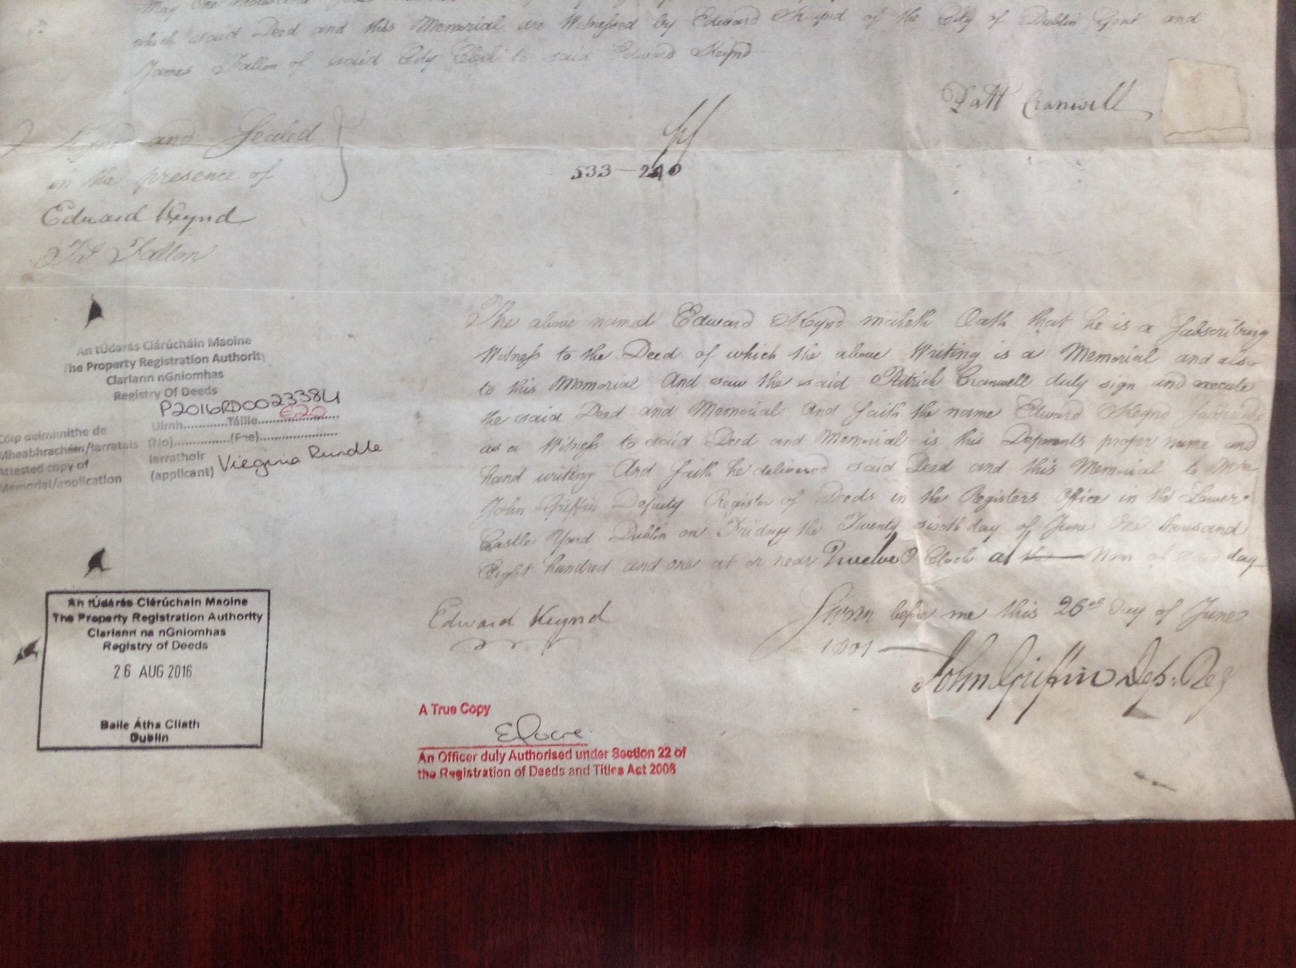 May One thousand
which said Deed and this Memorial are Witnessed by Edward Keynd of the City of Dublin Gent and
James Fallon of said City Clerk to said Edward Keynd
Patt Cranwell
Signed and Sealed
in the presence of
Edward Keynd
Jas Fallon
533-240
The above named Edward Keynd maketh Oath that he is a Subscribing
Witness to the Deed of which the above Writing is a Memorial and also
to this Memorial And saw the said Patrick Cranwell duly sign and execute
the said Deed and Memorial And saith the name Edward Keynd
as a Witness to said Deed and Memorial is his Deponents proper name and
hand writing And saith he delivered said Deed and this Memorial to Mr
John Griffin Deputy Register of Deeds in the Registers Office in the Lower
Castle Yard Dublin on Friday the Twenty sixth day of June One thousand
Eight hundred and one at or near Twelve O Clock at Noon of said day
Edward Keynd
Sworn before me this 26th day of June
1801
John Griffin Dep. Reg
An tÚdarás Clárúcháin Maoine
The Property Registration Authority
Clariann nGniomhas
Registry Of Deeds
P2016RD0023384
Uimh............Táille €20
(No)..............(Fee)..................
Iarrathóir
(applicant) Virginia Rundle
Cóip deimhnithe de
Mheabhrachám/Iarratais
Attested copy of
Memorial/application
An tÚdarás Clárúcháin Maoine
The Property Registration Authority
Clariann na nGniomhas
Registry of Deeds
26 AUG 2016
Baile Átha Cliath
Dublin
A True Copy
An Officer duly Authorised under Section 22 of
the Registration of Deeds and Titles Act 2006